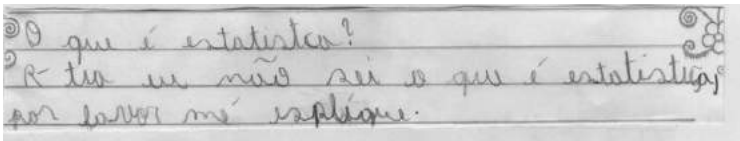 O que é estatistca?
R- tia eu não sei o que é estatistica,
por favor mé esplique.